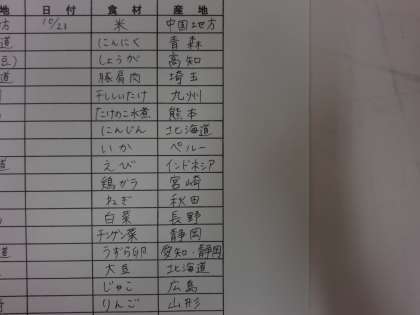 地 日付 食材 産地
方 10/23 米 中国地方
道 にんにく 青森
豆) しょうが 高知
道 豚肩肉 埼玉
干ししいたけ 九州
たけのこ水煮 熊本
にんじん 北海道
いか ペルー
えび インドネシア
鶏ガラ 宮崎
ねぎ 秋田
白菜 長野
道 チンゲン菜 静岡
うずら卵 愛知・静岡
道 大豆 北海道
じゃこ 広島
りんご 山形